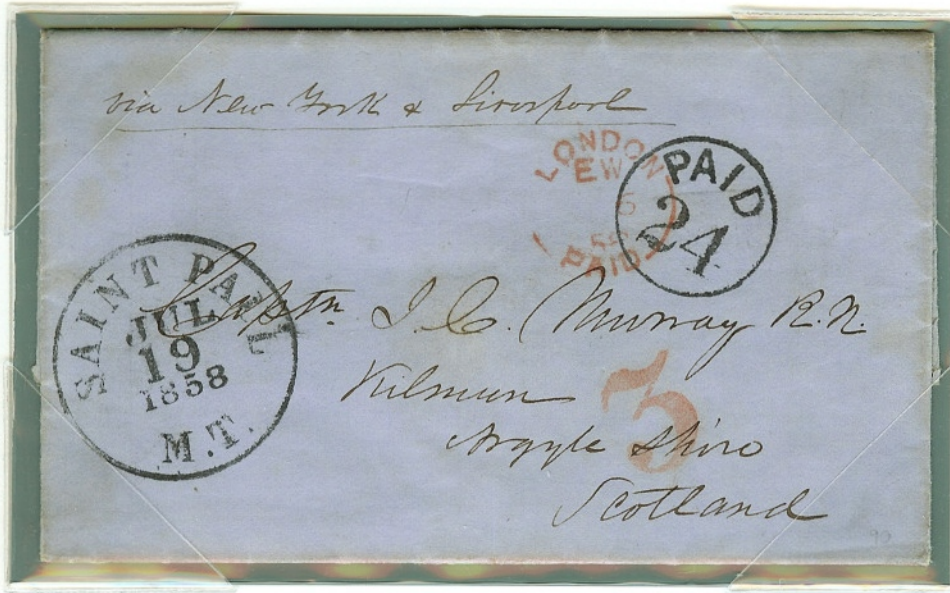 via New York & Liverpool
LONDON
EW
6
58
PAID
PAID
24
SAINT PAUL
JUL
19
1858
M.T.
Captn. J. C. Murray R.N.
Kilmun
Argyle Shire
Scotland
3